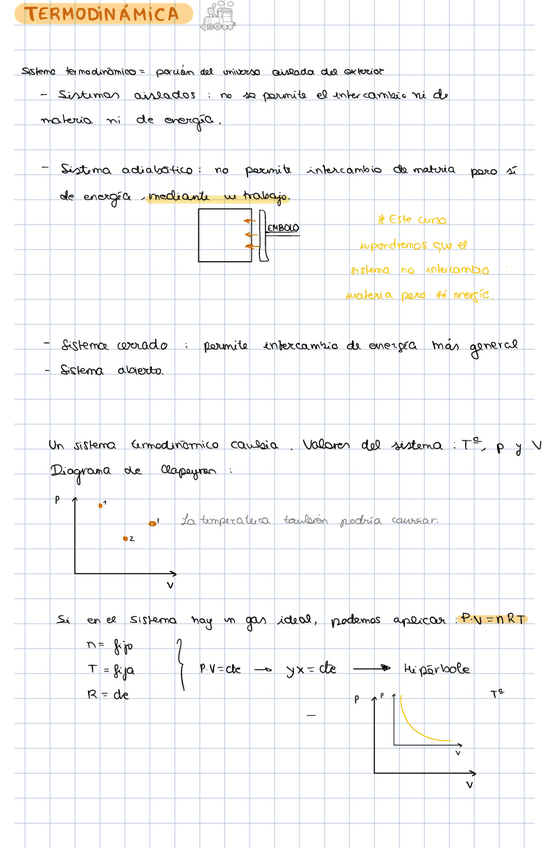 TERMODINÁMICA
Sistema termodinámico = porción del universo aislada del exterior
- Sistemas aislados : no se permite el intercambio ni de
materia ni de energía.
- Sistema adiabático : no permite intercambio de materia pero sí
de energía, mediante un trabajo.
EMBOLO
* Este curso
supondremos que el
sistema no intercambia
materia pero sí energía.
- Sistema cerrado : permite intercambio de energía más general
- Sistema abierto.
Un sistema termodinámico cambia. Valores del sistema : Tª, p y V
Diagrama de Clapeyron :
P
1
1
2
La temperatura también podría cambiar.
V
Si en el sistema hay un gas ideal, podemos aplicar : P·V = nRT
n = fijo
T = fija
R = cte
P·V = cte → yx = cte → Hipérbole
P
P
Tª
V
V